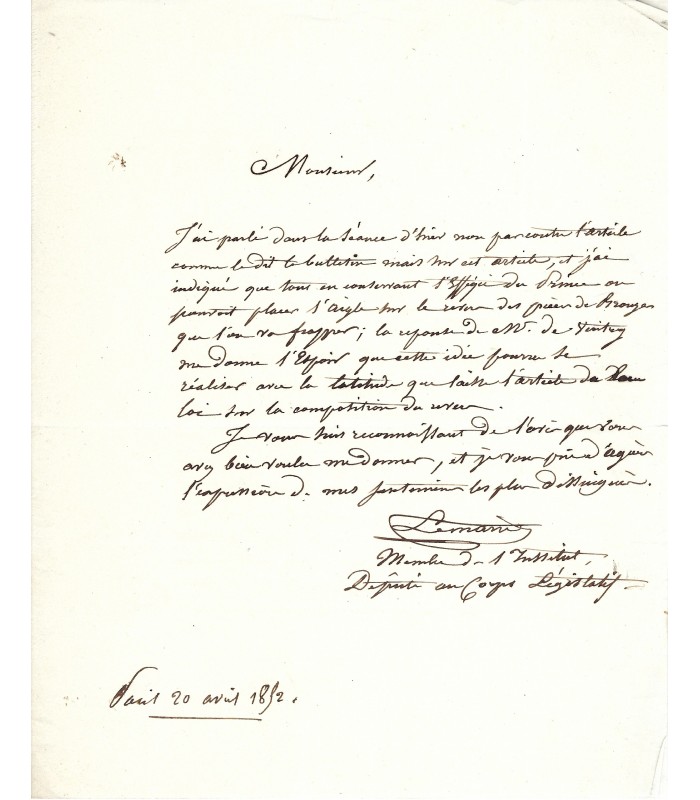 Monsieur,
J'ai parlé dans la Séance d'hier non pas contre l'article
comme le dit le bulletin mais sur cet article, et j'ai
indiqué que tout en conservant l'Effigie du Prince on
pourrait placer l'aigle sur le revers des pièces de Bronze
que l'on va frapper; la réponse de M. de
me donne l'Espoir que cette idée pourra se
réaliser avec la latitude que laisse l'article de la
loi sur la composition du revers.
Je vous suis reconnaissant de l'avis que vous
avez bien voulu me donner, et je vous prie d'agréer
l'expression de mes sentiments les plus distingués.
Membre de l'Institut,
Député au Corps Législatif.
Paris 20 avril 1852.